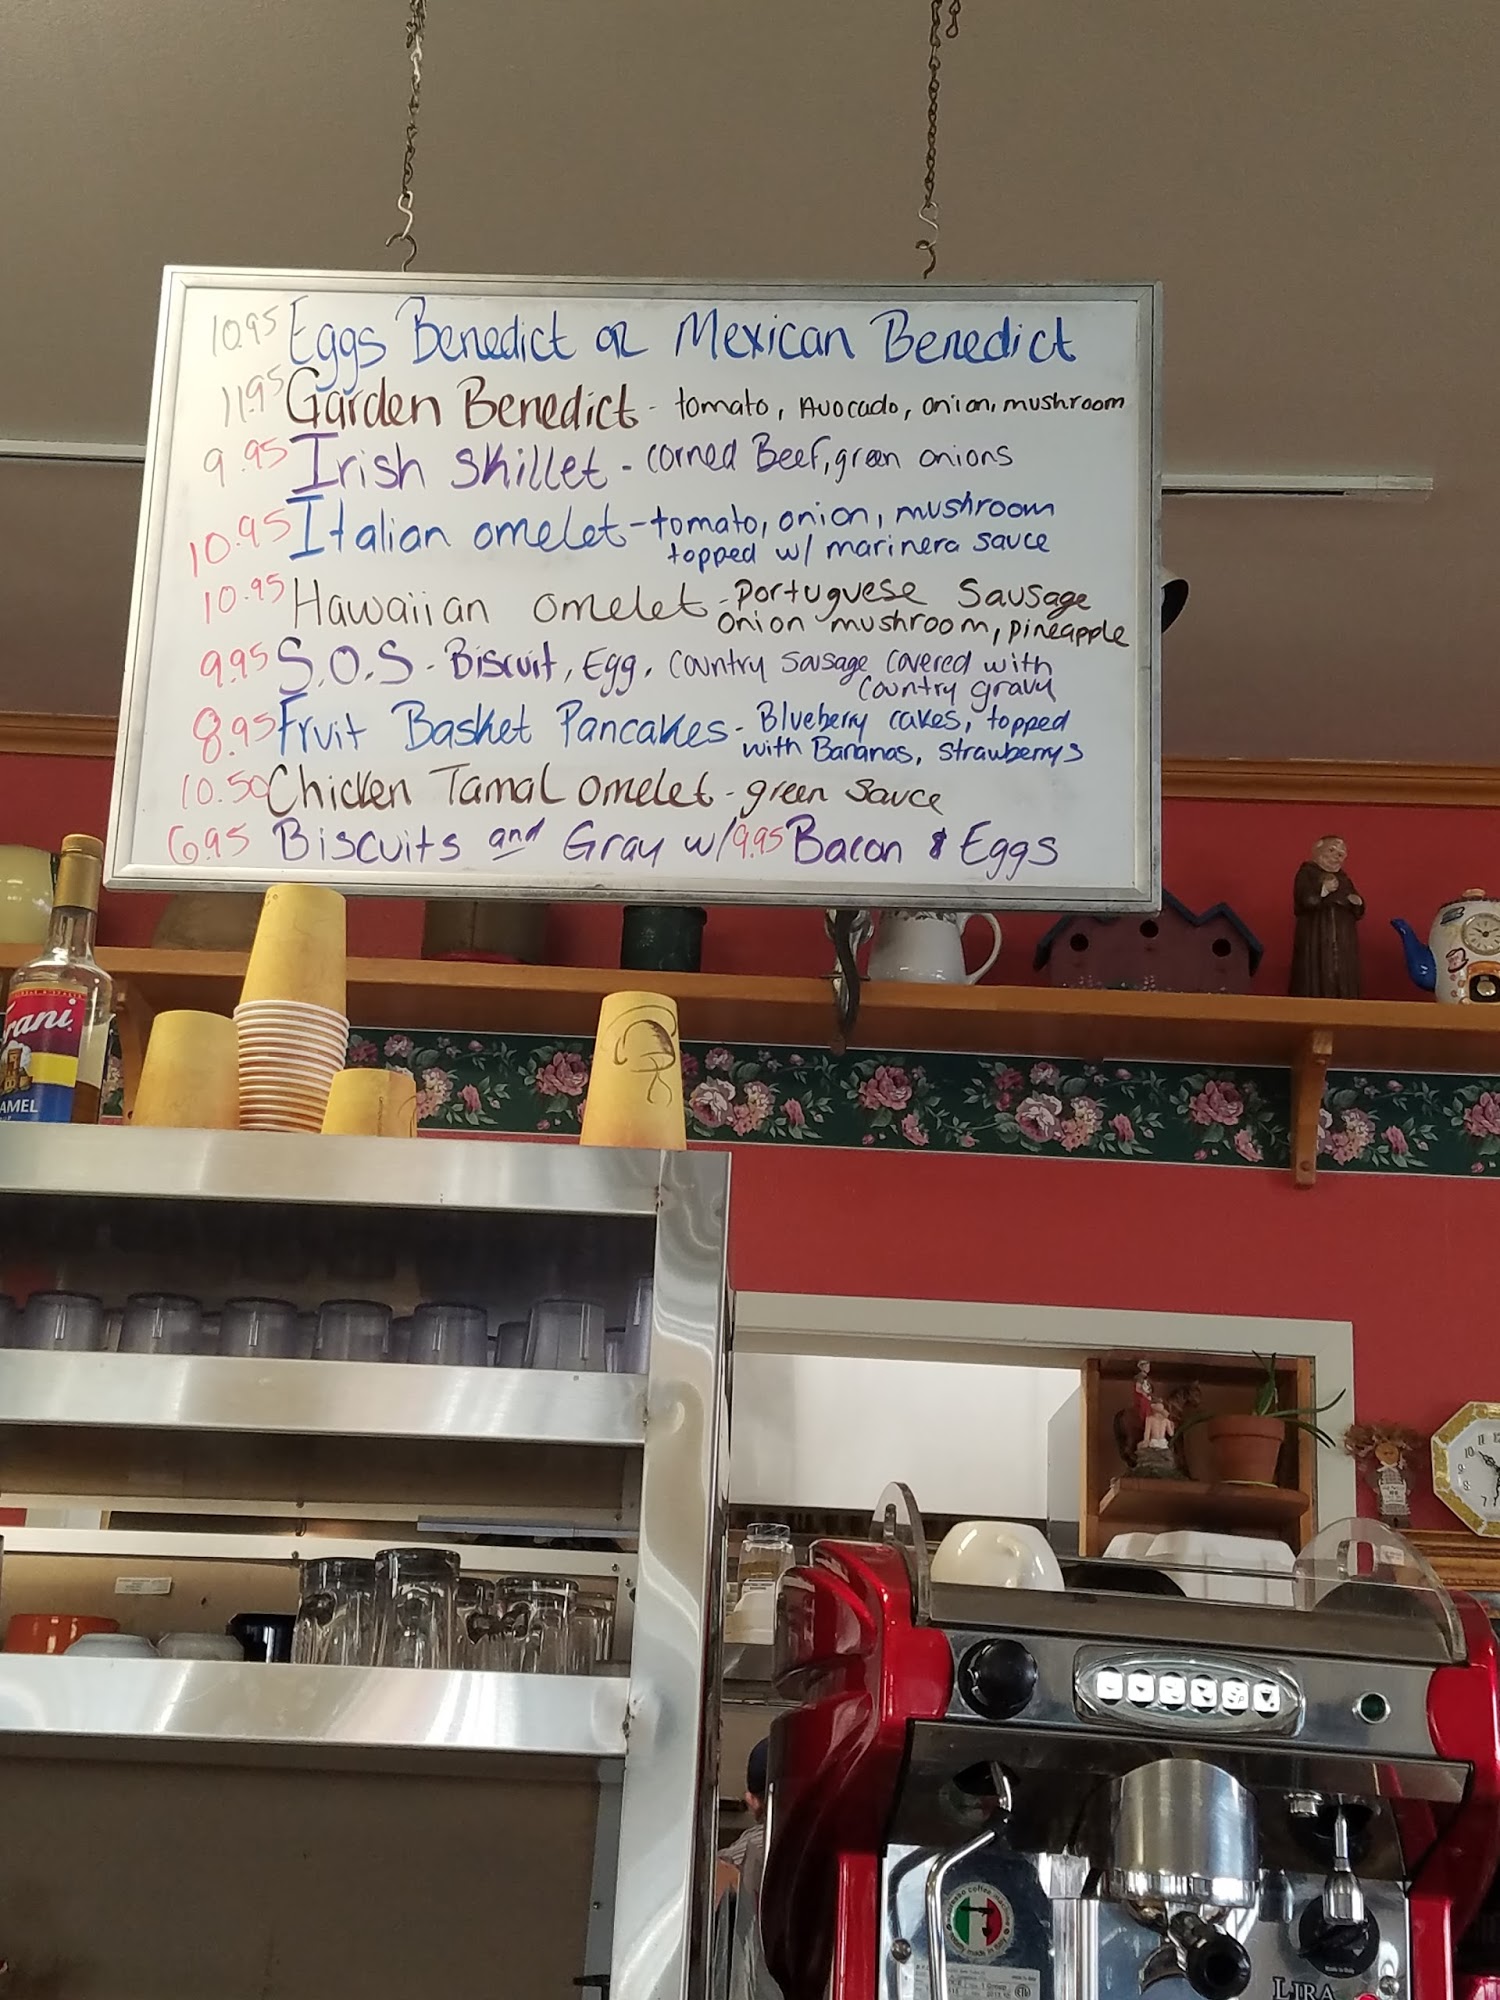 10.95 Eggs Benedict or Mexican Benedict
11.95 Garden Benedict - tomato, Avocado, onion, mushroom
9.95 Irish Skillet - corned Beef, green onions
10.95 Italian omelet - tomato, onion, mushroom
topped w/ marinera sauce
10.95 Hawaiian omelet - Portuguese Sausage
onion mushroom, pineapple
9.95 S.O.S - Biscuit, Egg, Country Sausage covered with
country gravy
8.95 Fruit Basket Pancakes - Blueberry cakes, topped
with Bananas, strawberrys
10.50 Chicken Tamal omelet - green sauce
6.95 Biscuits and Gravy w/ 9.95 Bacon & Eggs
rani
AMEL
LIRA